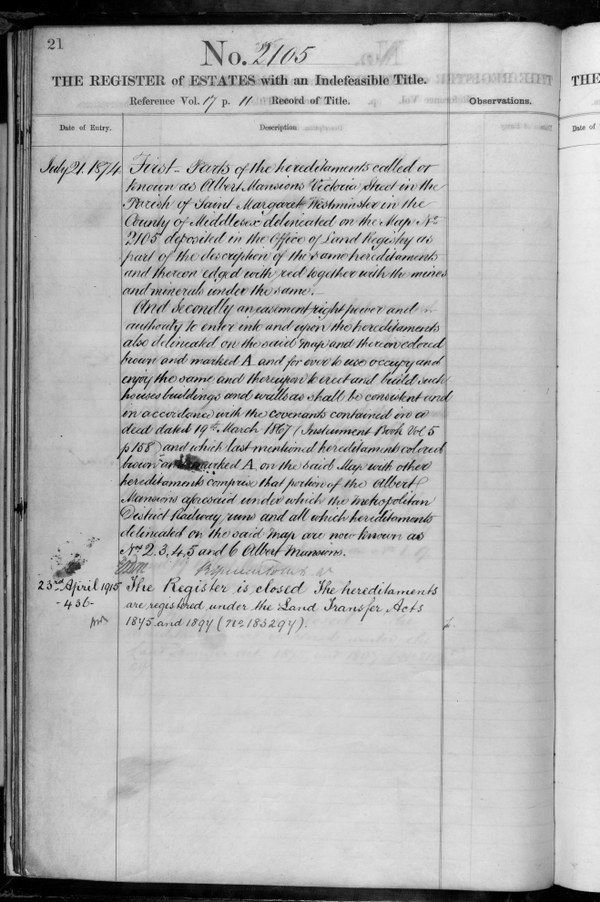 21
No. 2105
THE REGISTER of ESTATES with an Indefeasible Title.
Reference Vol. 17 p. 11 Record of Title.
Observations.
Date of Entry.
Description
July 21. 1874
First – Parts of the hereditaments called or
known as Albert Mansions Victoria Street in the
Parish of Saint Margaret Westminster in the
County of Middlesex delineated on the Map No
2105 deposited in the Office of Land Registry as
part of the description of the same hereditaments
and thereon edged with red together with the mines
and minerals under the same.
And Secondly an easement right power and
authority to enter into and upon the hereditaments
also delineated on the said Map and thereon colored
brown and marked A and for ever to use occupy and
enjoy the same and thereupon to erect and build such
houses buildings and walls as shall be consistent and
in accordance with the covenants contained in a
deed dated 19th March 1867 (Instrument Book Vol 5
p 158) and which last mentioned hereditaments colored
brown and marked A on the said Map with other
hereditaments comprise that portion of the Albert
Mansions aforesaid under which the Metropolitan
District Railway runs and all which hereditaments
delineated on the said Map are now known as
Nos 2, 3, 4, 5 and 6 Albert Mansions.
23rd April 1915
- 436 -
The Register is closed The hereditaments
are registered under the Land Transfer Acts
1875 and 1897 (No 183297).
THE
Date of